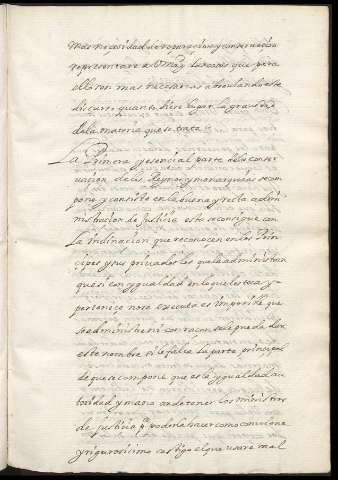 mas necesidad de reparacion y conservacion
representare a V Mag. las cosas que para
ello son mas necesarias abreviando este
discurso quanto diere lugar la gravedad
de la materia que se trata
La Primera y esencial parte de la conser
uacion de los Reynos y monarquias se com
pone y consiste en la buena y recta admi
nistracion de Justicia esto se consigue con
la inclinacion que reconocen en los Prin
cipes y sus privados los que la administran
que si con ygualdad en lo que les toca y
pertenece no se executa es imposible que
se administre ni con raçon se le pueda dar
este nombre si le falta la parte principal
de que se compone que es la ygualdad au
toridad y mano an de tener los ministros
de justicia pª poderla hacer como conviene
y rigurosisimo castigo el que usare mal